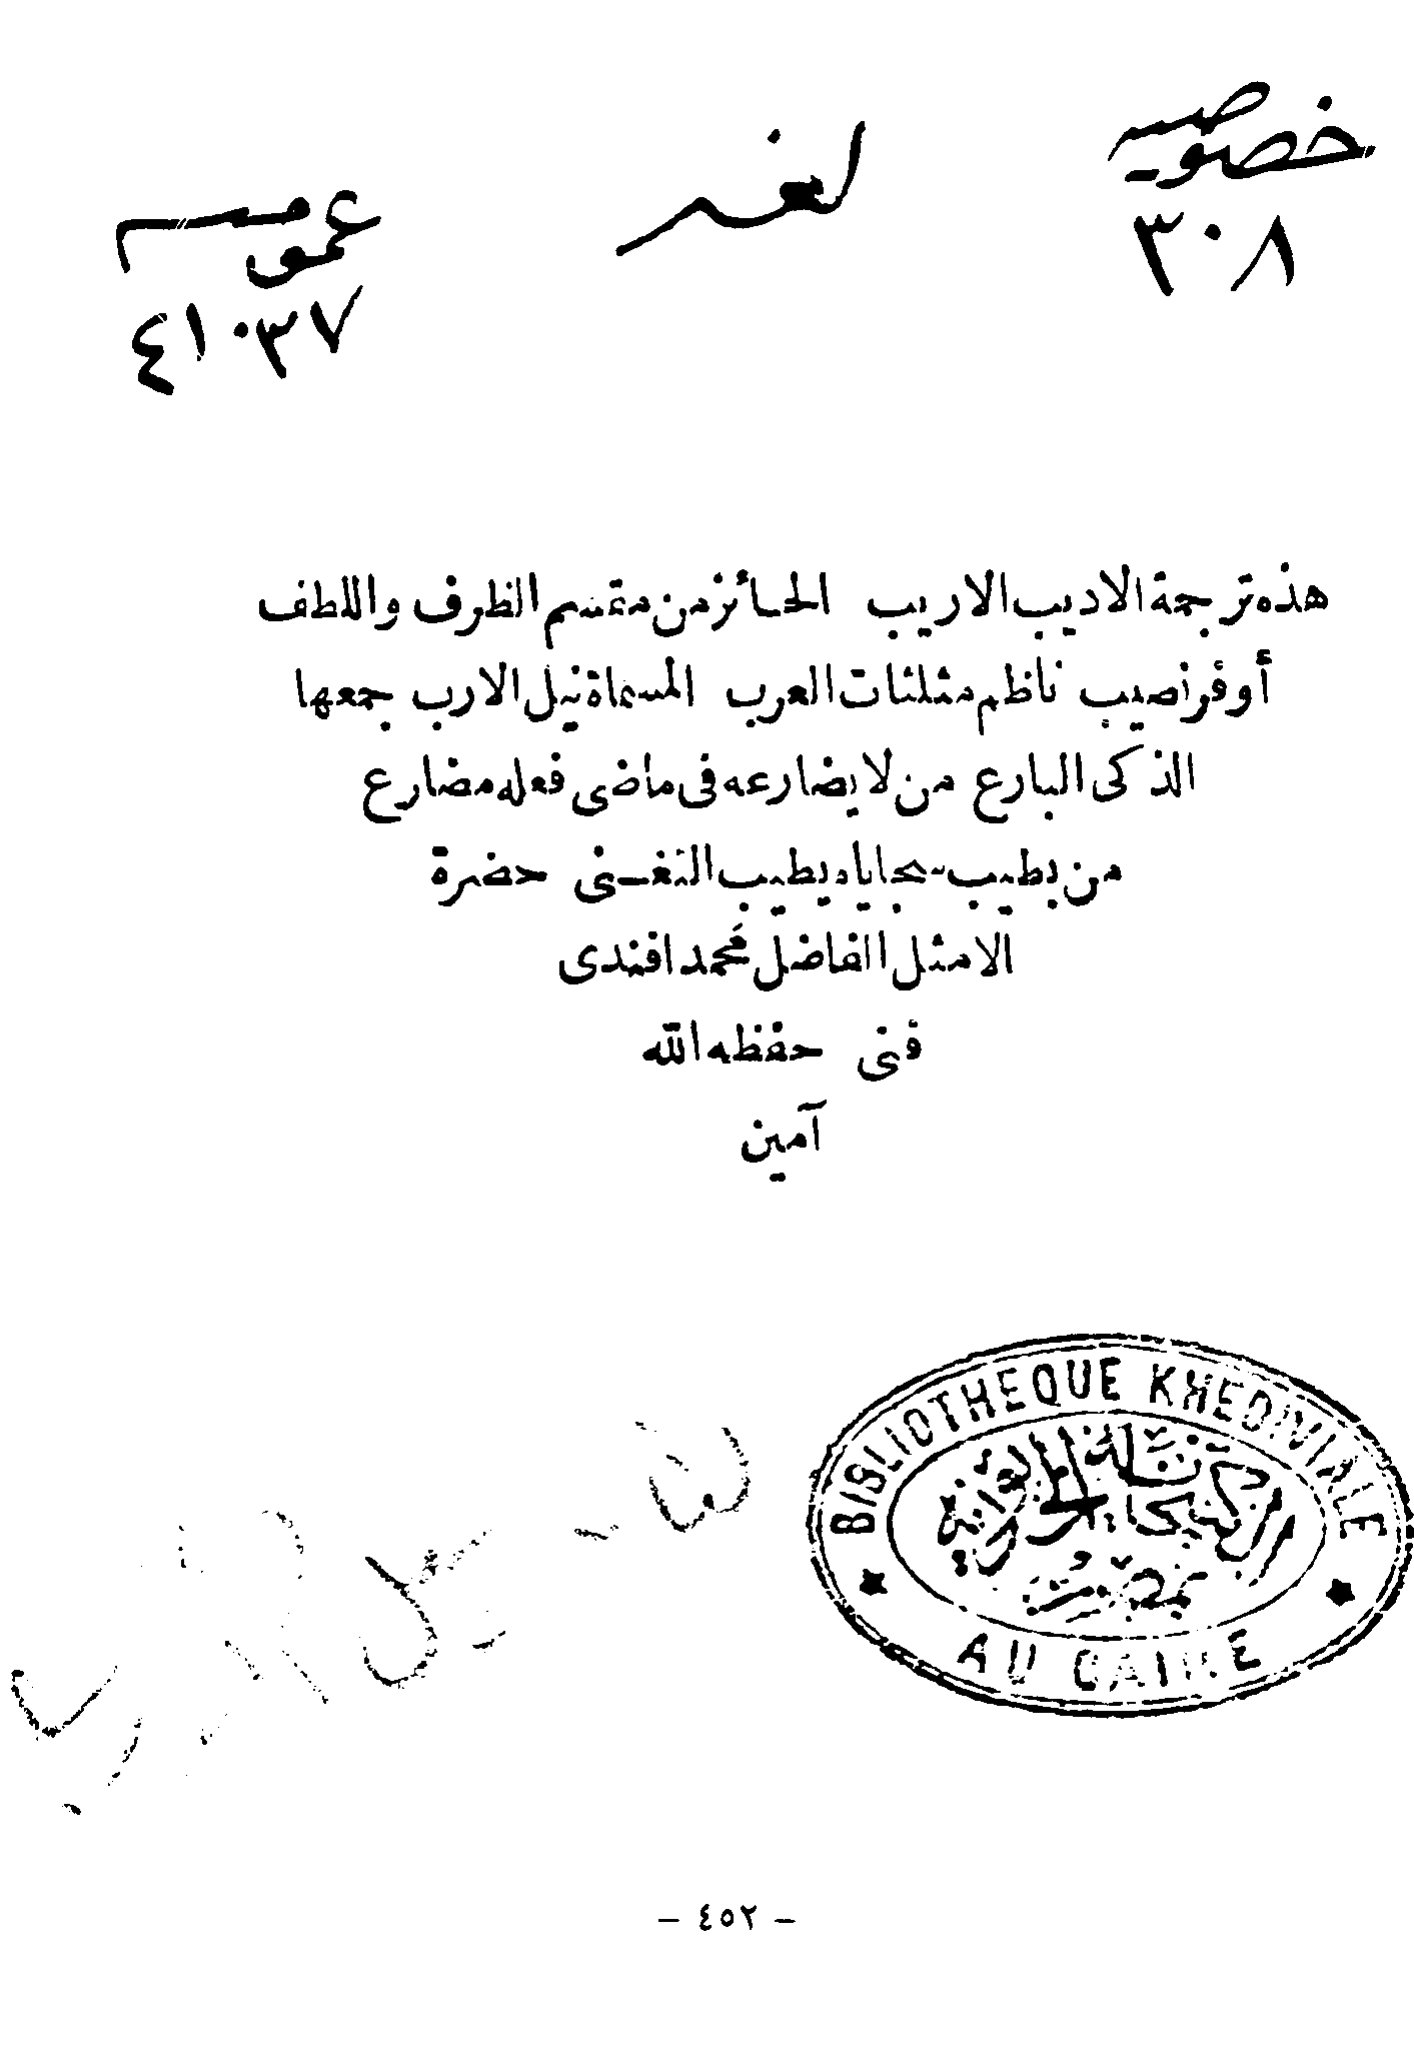 خصوصيه
٣٠٨
لغه
عموميه
٤١٠٣٧
هذه ترجمة الاديب الاريب الحائز من مقسم الظرف واللطف
أوفر نصيب ناظم مثلثات العرب المسماة نيل الارب جمعها
الذكى البارع من لا يضارعه فى ماضى فعله مضارع
من بطيب سجاياه يطيب التغنى حضرة
الامثل الفاضل محمد افندى
فنى حفظه الله
آمين
BIBLIOTHEQUE KHEDIVIALE
AU CAIRE
- ٤٥٢ -